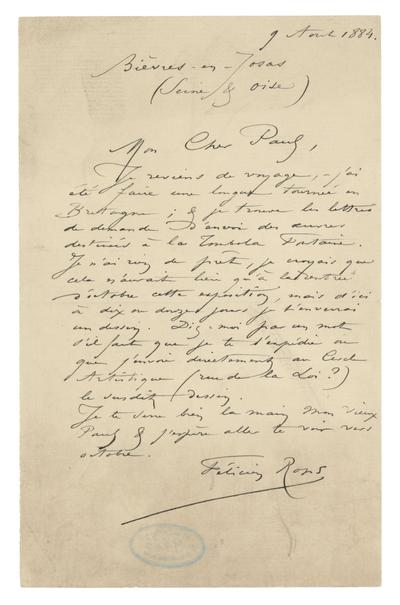 9 Aout 1884.
Bièvres-en-Josas
(Seine & Oise)
Mon Cher Paul,
Je reviens de voyage, - j'ai
été faire une longue tournée en
Bretagne ; & je trouve les lettres
de demande d'envoi des œuvres
destinées à la Tombola
Je n'ai rien de prêt, je croyais que
cela n'aurait lieu qu'à la rentrée
d'octobre cette exposition, mais d'ici
à dix ou douze jours je t'enverrai
un dessin. Dis-moi par un mot
s'il faut que je te l'expédie ou
que j'envoie directement au Cercle
Artistique (rue de la Loi ?)
le susdit dessin.
Je te serre bien la main mon vieux
Paul & j'espère aller te voir vers
octobre.
Félicien Rops